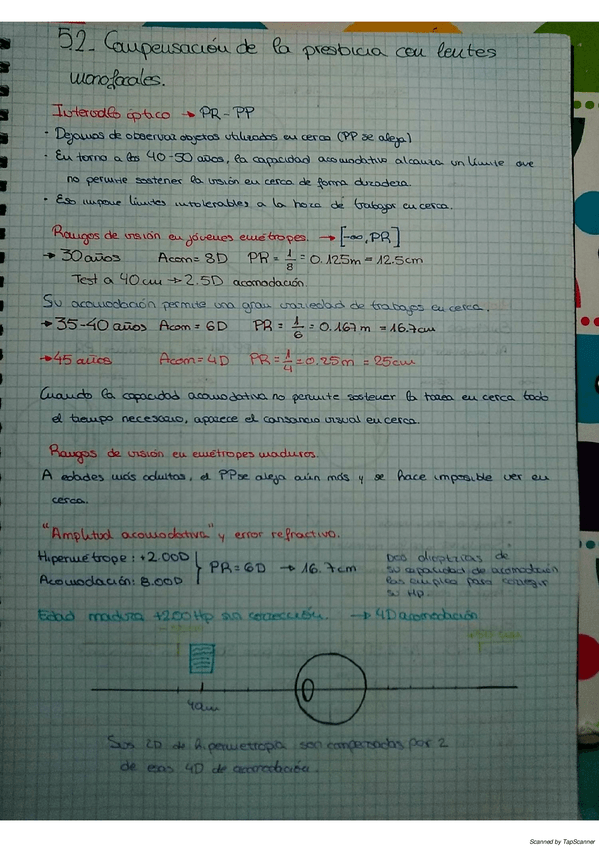 5.2- Compensación de la presbicia con lentes
monofocales.
Intervalo óptico → PR - PP
· Dejamos de observar objetos utilizados en cerca (PP se aleja)
· En torno a los 40-50 años, la capacidad acomodativa alcanza un límite que
no permite sostener la visión en cerca de forma duradera.
· Eso impone límites intolerables a la hora de trabajar en cerca.
Rangos de visión en jóvenes emétropes. → [-∞, PR]
→ 30 años Acom = 8D PR = 1/8 = 0.125m = 12.5cm
Test a 40cm → 2.5D acomodación.
Su acomodación permite una gran variedad de trabajos en cerca.
→ 35-40 años Acom = 6D PR = 1/6 = 0.167m = 16.7cm
→ 45 años Acom = 4D PR = 1/4 = 0.25m = 25cm
Cuando la capacidad acomodativa no permite sostener la tarea en cerca todo
el tiempo necesario, aparece el cansancio visual en cerca.
Rangos de visión en emétropes maduros.
A edades más adultas, el PP se aleja aún más y se hace imposible ver en
cerca.
"Amplitud acomodativa" y error refractivo.
Hipermétrope: +2.00D
Acomodación: 8.00D
} PR = 6D → 16.7cm
Dos dioptrías de
su capacidad de acomodación
las emplea para corregir
su Hp.
Edad madura +2.00 Hp sin corrección. → 4D acomodación
40cm
Sus 2D de hipermetropía son compensadas por 2
de esas 4D de acomodación.
Scanned by TapScanner